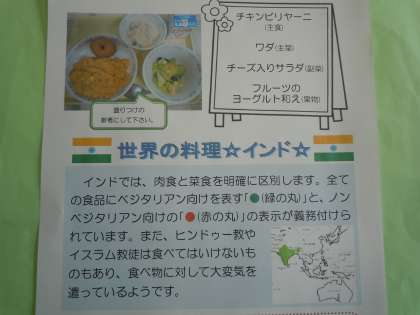 チキンビリヤーニ
(主食)
ワダ(主菜)
チーズ入りサラダ(副菜)
フルーツの
ヨーグルト和え(果物)
盛りつけの
参考にして下さい。
世界の料理☆インド☆
インドでは、肉食と菜食を明確に区別します。全て
の食品にベジタリアン向けを表す「●(緑の丸)」と、ノン
ベジタリアン向けの「●(赤の丸)」の表示が義務付けら
れています。また、ヒンドゥー教や
イスラム教徒は食べてはいけないも
のもあり、食べ物に対して大変気を
遣っているようです。